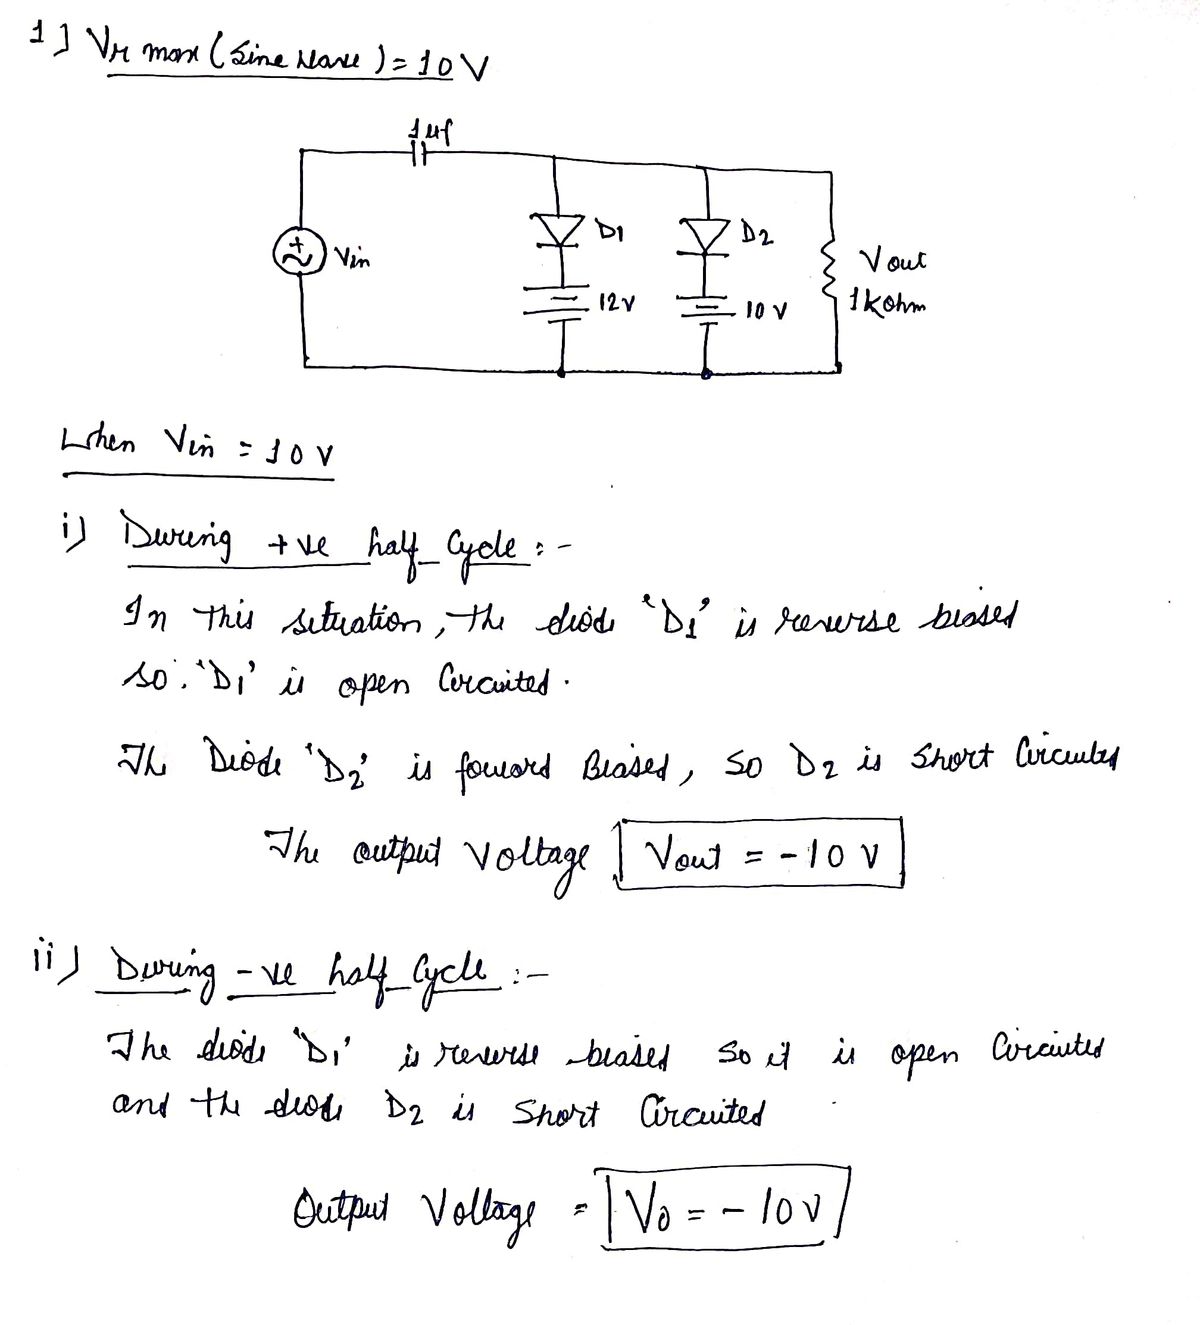 1] Vr max (Sine Wave) = 10 V
1 uf
Vin
D1
D2
12 V
10 V
Vout
1 kohm
When Vin = 10 V
i) During +ve half Cycle :-
In this situation, the diode 'D1' is reverse biased
so, 'D1' is open Circuited.
The Diode 'D2' is forward Biased, So D2 is Short Circuited
The output voltage Vout = -10 V
ii) During -ve half Cycle :-
The diode 'D1' is reverse biased So it is open Circuited
and the diode D2 is Short Circuited
Output Voltage = Vo = -10 V